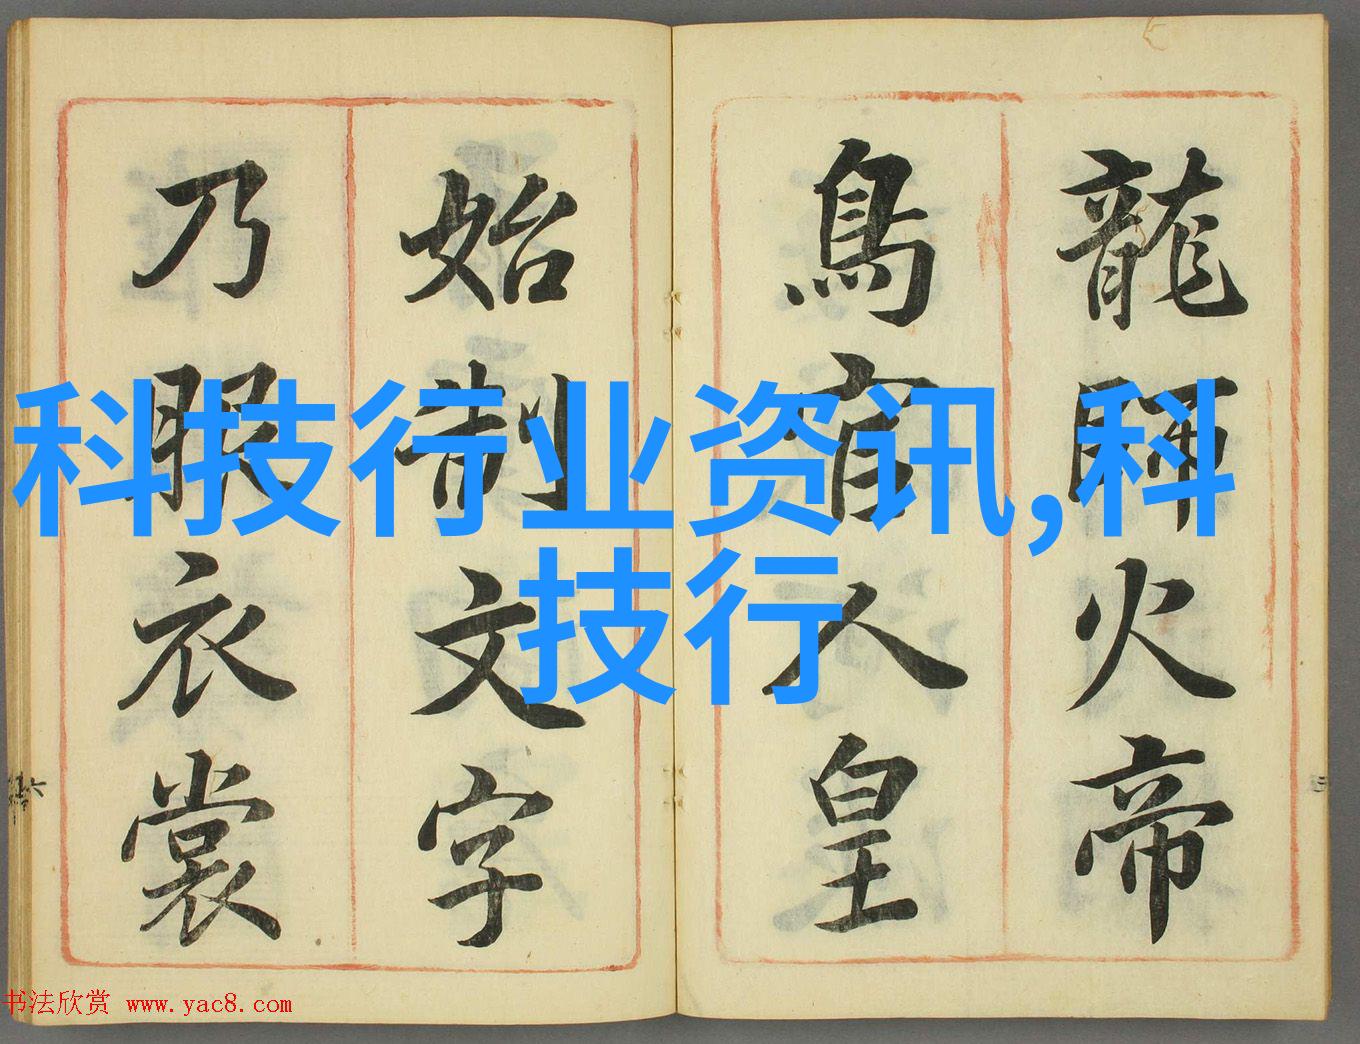 龍師火帝
鳥官人皇
始制文字
乃服衣裳
科技行业资讯,科
技行
书法欣赏 www.yac8.com